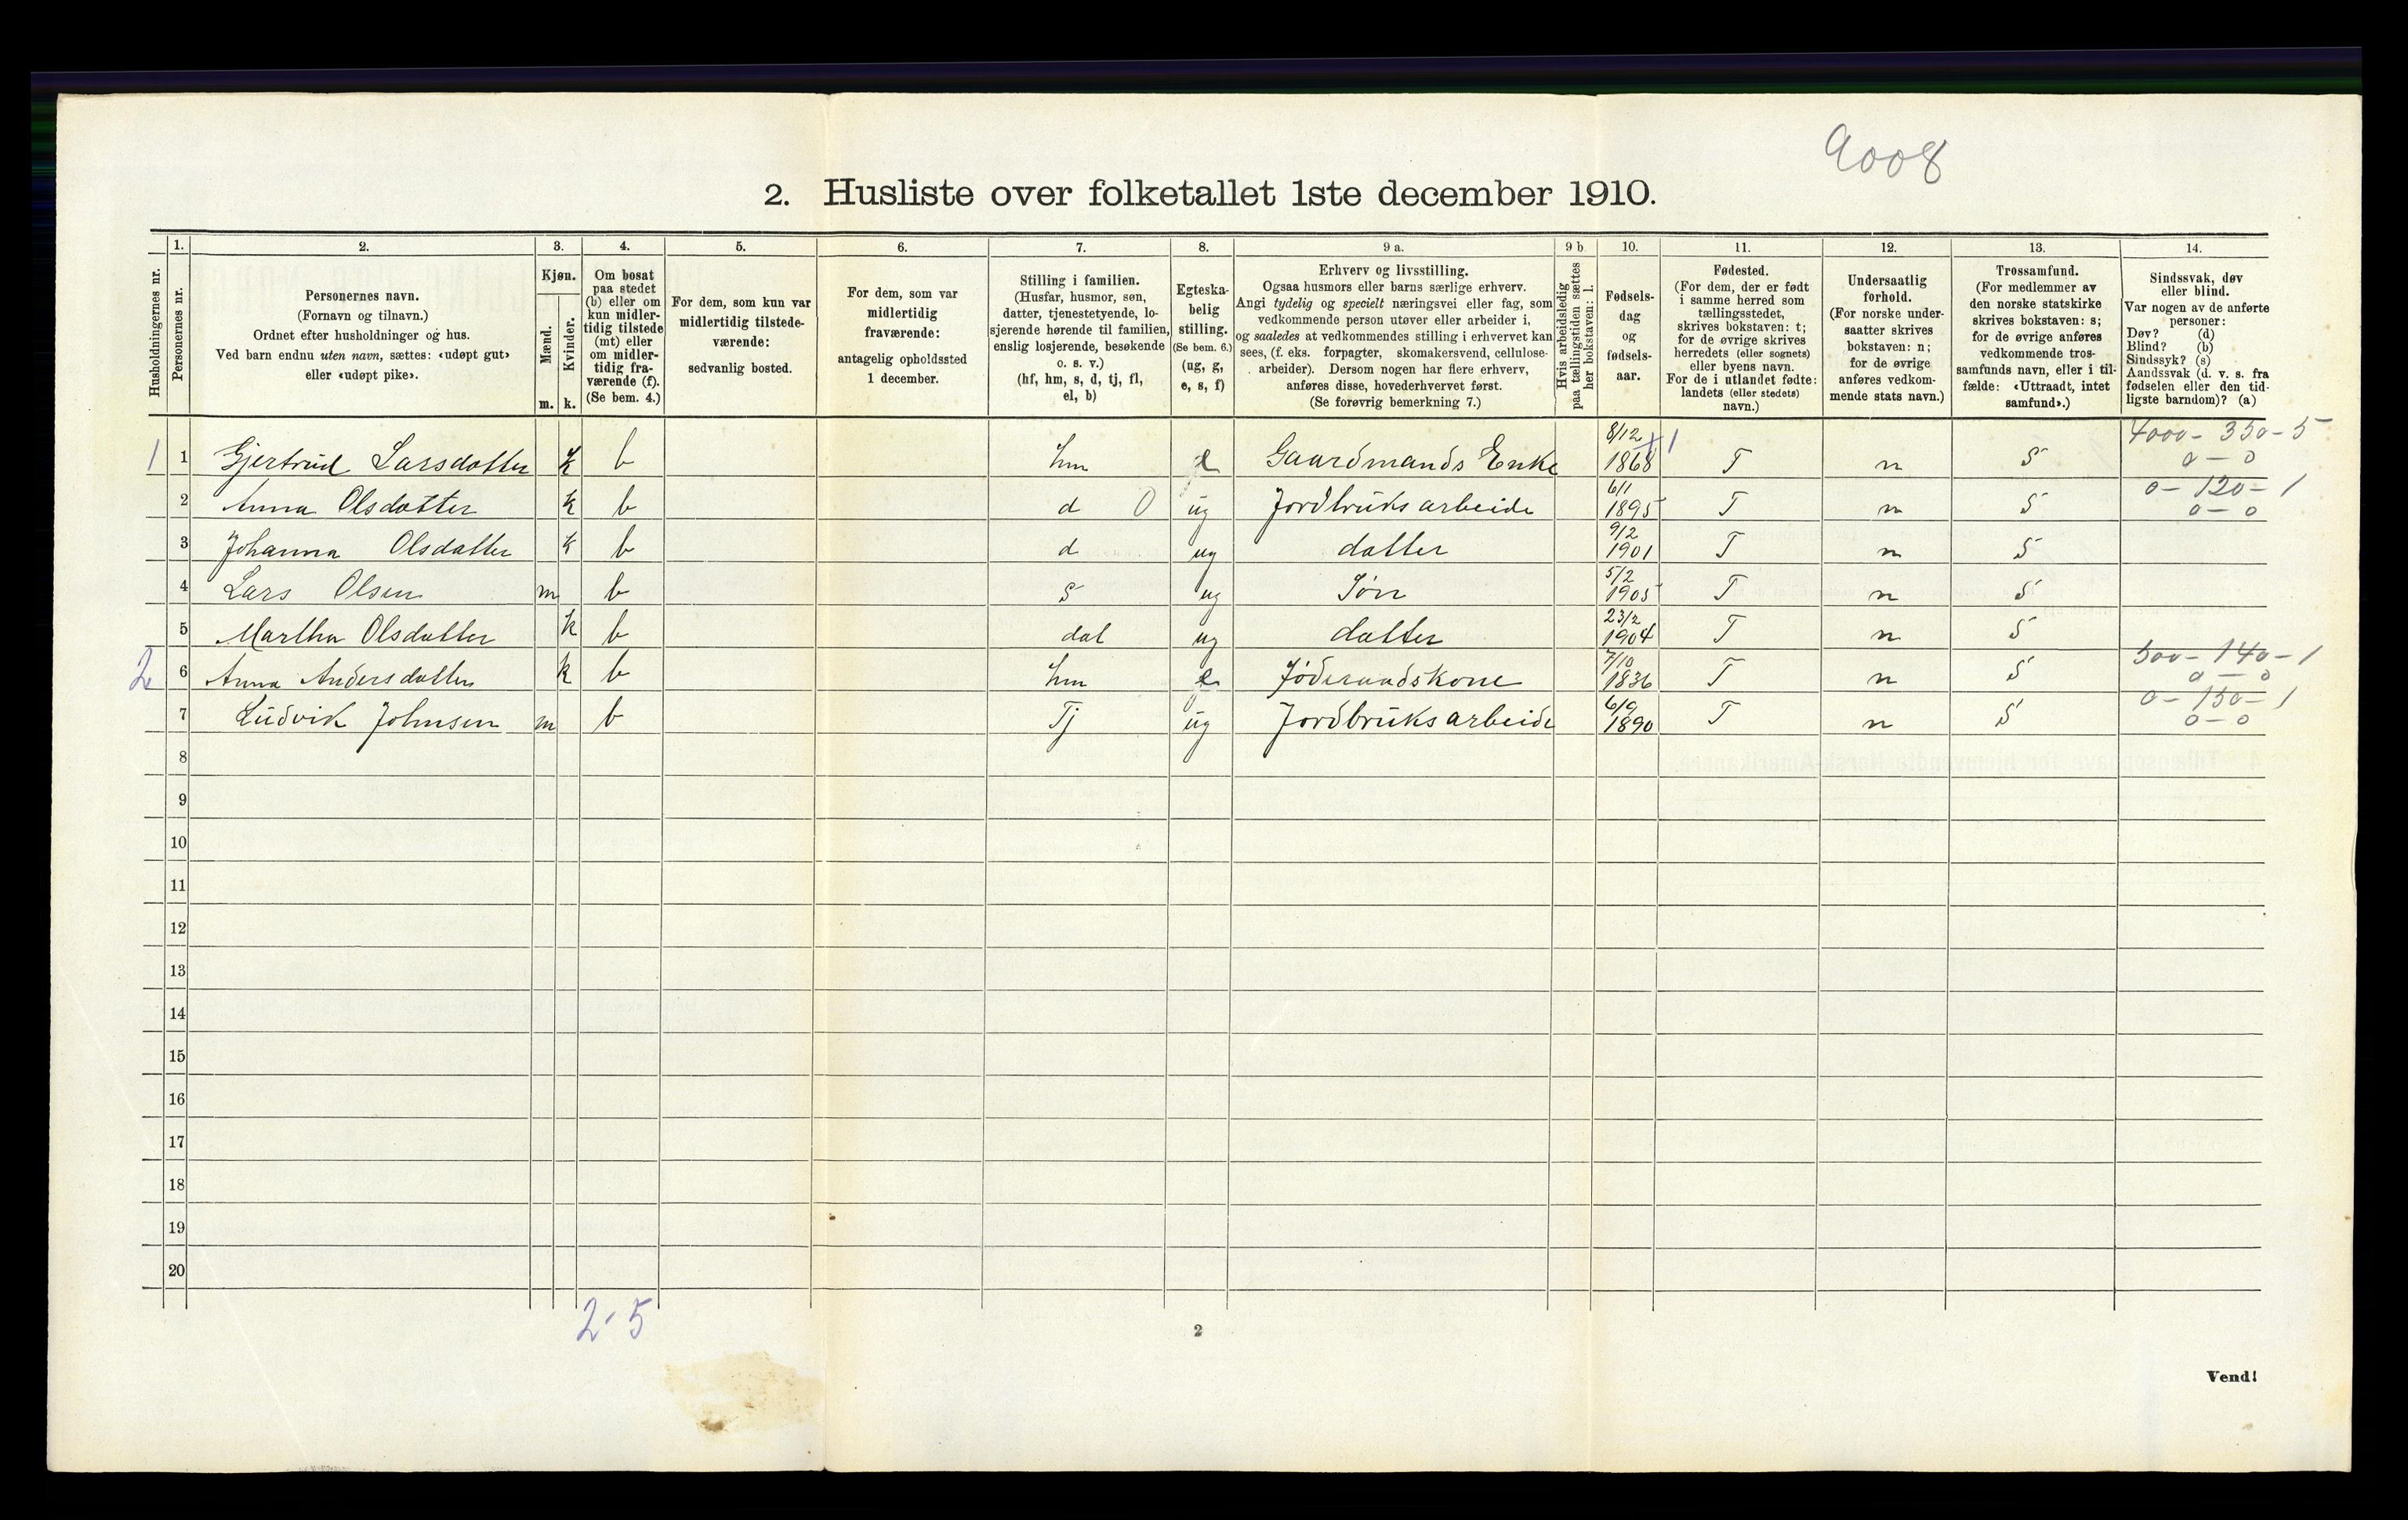 9008
2. Husliste over folketallet 1ste december 1910.
1. 2. 3. 4. 5. 6. 7. 8. 9 a. 9 b 10. 11. 12. 13. 14.
Husholdningernes nr.
Personernes nr.
Personernes navn.
(Fornavn og tilnavn.)
Ordnet efter husholdninger og hus.
Ved barn endnu uten navn, sættes: «udøpt gut»
eller «udøpt pike».
Kjøn.
Mænd.
Kvinder.
m. k.
Om bosat
paa stedet
(b) eller om
kun midler-
tidig tilstede
(mt) eller
om midler-
tidig fra-
værende (f).
(Se bem. 4.)
For dem, som kun var
midlertidig tilstede-
værende:
sedvanlig bosted.
For dem, som var
midlertidig
fraværende:
antagelig opholdssted
1 december.
Stilling i familien.
(Husfar, husmor, søn,
datter, tjenestetyende, lo-
sjerende hørende til familien,
enslig losjerende, besøkende
o. s. v.)
(hf, hm, s, d, tj, fl,
el, b)
Egteska-
belig
stilling.
(Se bem. 6.)
(ug, g,
e, s, f)
Erhverv og livsstilling.
Ogsaa husmors eller barns særlige erhverv.
Angi tydelig og specielt næringsvei eller fag, som
vedkommende person utøver eller arbeider i,
og saaledes at vedkommendes stilling i erhvervet kan
sees, (f. eks. forpagter, skomakersvend, cellulose-
arbeider). Dersom nogen har flere erhverv,
anføres disse, hovederhvervet først.
(Se forøvrig bemerkning 7.)
Hvis arbeidsledig
paa tællingstiden sættes
her bokstaven: l.
Fødsels-
dag
og
fødsels-
aar.
Fødested.
(For dem, der er født
i samme herred som
tællingsstedet,
skrives bokstaven: t;
for de øvrige skrives
herredets (eller sognets)
eller byens navn.
For de i utlandet fødte:
landets (eller stedets)
navn.)
Undersaatlig
forhold.
(For norske under-
saatter skrives
bokstaven: n;
for de øvrige
anføres vedkom-
mende stats navn.)
Trossamfund.
(For medlemmer av
den norske statskirke
skrives bokstaven: s;
for de øvrige anføres
vedkommende tros-
samfunds navn, eller i til-
fælde: «Uttraadt, intet
samfund».)
Sindssvak, døv
eller blind.
Var nogen av de anførte
personer:
Døv? (d)
Blind? (b)
Sindssyk? (s)
Aandssvak (d. v. s. fra
fødselen eller den tid-
ligste barndom)? (a)
1 1 Gjertrud Larsdatter k b hm e Gaardmands Enke 8/12 1868 T n S 4000 - 350 - 5 0 - 0
2 Anna Olsdatter k b d 0 ug Jordbruks arbeide 6/1 1895 T n S 0 - 120 - 1 0 - 0
3 Johanna Olsdatter k b d ug datter 9/2 1901 T n S
4 Lars Olsen m b S ug Søn 5/2 1905 T n S
5 Martha Olsdatter k b dat ug datter 23/2 1904 T n S
2 6 Anna Andersdatter k b hm e 7/10 1836 T n S 500 - 140 - 1 0 - 0
7 Ludvik Johnsen m b Tj ug Jordbruksarbeide 6/9 1890 T n S 0 - 150 - 1 0 - 0
8
9
10
11
12
13
14
15
16
17
18
19
20
2 - 5
2
Vend!